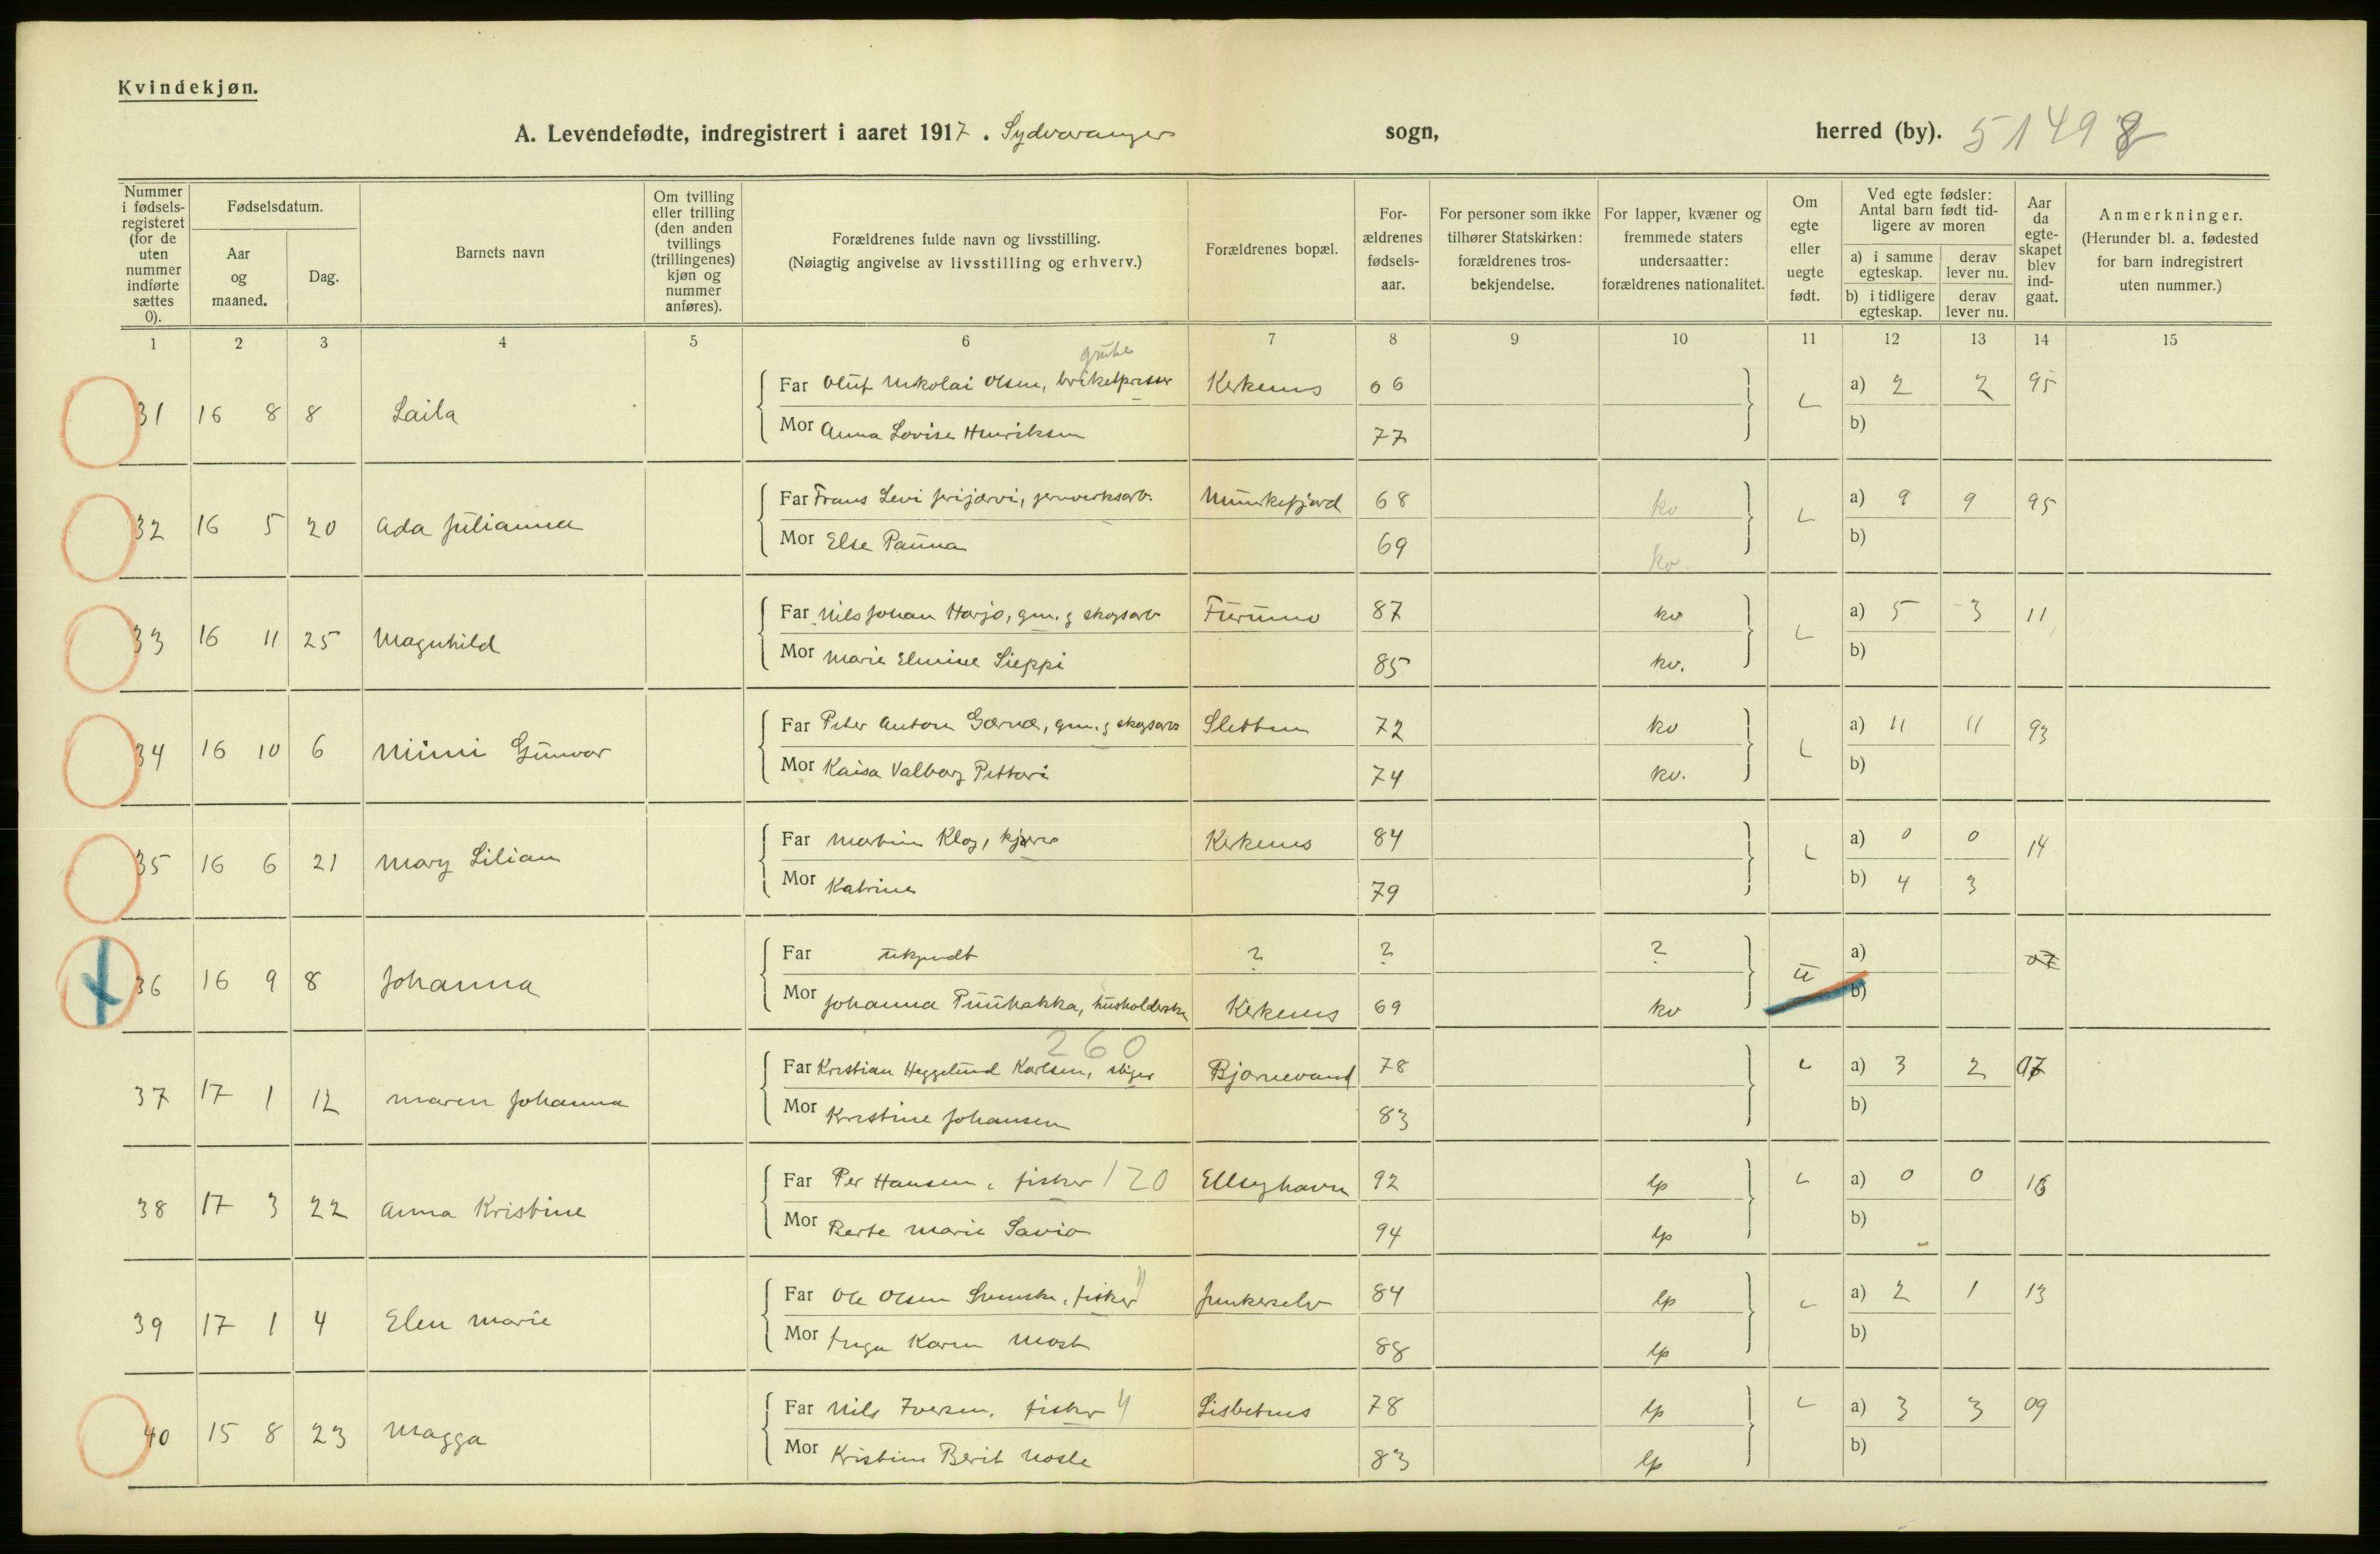 Kvindekjøn.
A. Levendefødte, indregistrert i aaret 1917. Sydvaranger sogn, herred (by). 51498
Nummer i fødsels-registeret (for de uten nummer indførte sættes 0).
Fødselsdatum.
Aar og maaned.
Dag.
Barnets navn
Om tvilling eller trilling (den anden tvillings (trillingenes) kjøn og nummer anføres).
Forældrenes fulde navn og livsstilling.
(Nøiagtig angivelse av livsstilling og erhverv.)
Forældrenes bopæl.
For-ældrenes fødsels-aar.
For personer som ikke tilhører Statskirken: forældrenes tros-bekjendelse.
For lapper, kvæner og fremmede staters undersaatter: forældrenes nationalitet.
Om egte eller uegte født.
Ved egte fødsler: Antal barn født tid-ligere av moren
a) i samme egteskap.
derav lever nu.
b) i tidligere egteskap.
derav lever nu.
Aar da egte-skapet blev ind-gaat.
Anmerkninger.
(Herunder bl. a. fødested for barn indregistrert uten nummer.)
1 2 3 4 5 6 7 8 9 10 11 12 13 14 15
grube
31 16 8 8 Laila Far Oluf Nikolai Olsen, briketpresser Kirkenes 66 a) 2 2 95
Mor Anna Lovise Henriksen 77 b)
32 16 5 20 Ada Julianna Far Frans Levi Jerijærvi, jernverksarb. Munkefjord 68 kv a) 9 9 95
Mor Else Pauna 69 kv. b)
33 16 11 25 Magnhild Far Nils Johan Harjo, gm. g skogsarb Furumo 87 kv a) 5 3 11
Mor Marie Elmine Sieppi 85 kv. b)
34 16 10 6 Mimi Gunvor Far Peter Anton Gærnæ, gm. g skogsarb Sletten 72 kv a) 11 11 93
Mor Kaisa Valborg Pittari 74 kv. b)
35 16 6 21 Mary Lilian Far Martin Klog, kjører Kirkenes 84 a) 0 0 14
Mor Katrine 79 b) 4 3
36 16 9 8 Johanna Far ukjendt ? ? ? u a) 07
Mor Johanna Puuhakka, husholderske Kirkenes 69 kv b)
260
37 17 1 12 Maren Johanna Far Kristian Heggelund Karlsen, stiger Bjørnevand 78 a) 3 2 07
Mor Kristine Johansen 83 b)
38 17 3 22 Anna Kristine Far Per Hansen, fisker 120 Ellenghavn 92 lp a) 0 0 16
Mor Berte Marie Savio 94 lp b)
39 17 1 4 Elen Marie Far Ole Olsen Svenske, fisker " Junkerselv 84 lp a) 2 1 13
Mor Inga Karen Mosh 88 lp b)
40 15 8 23 Magga Far Nils Iversen, fisker " Lisbetnes 78 lp a) 3 3 09
Mor Kristine Berit Nosle 83 lp b)